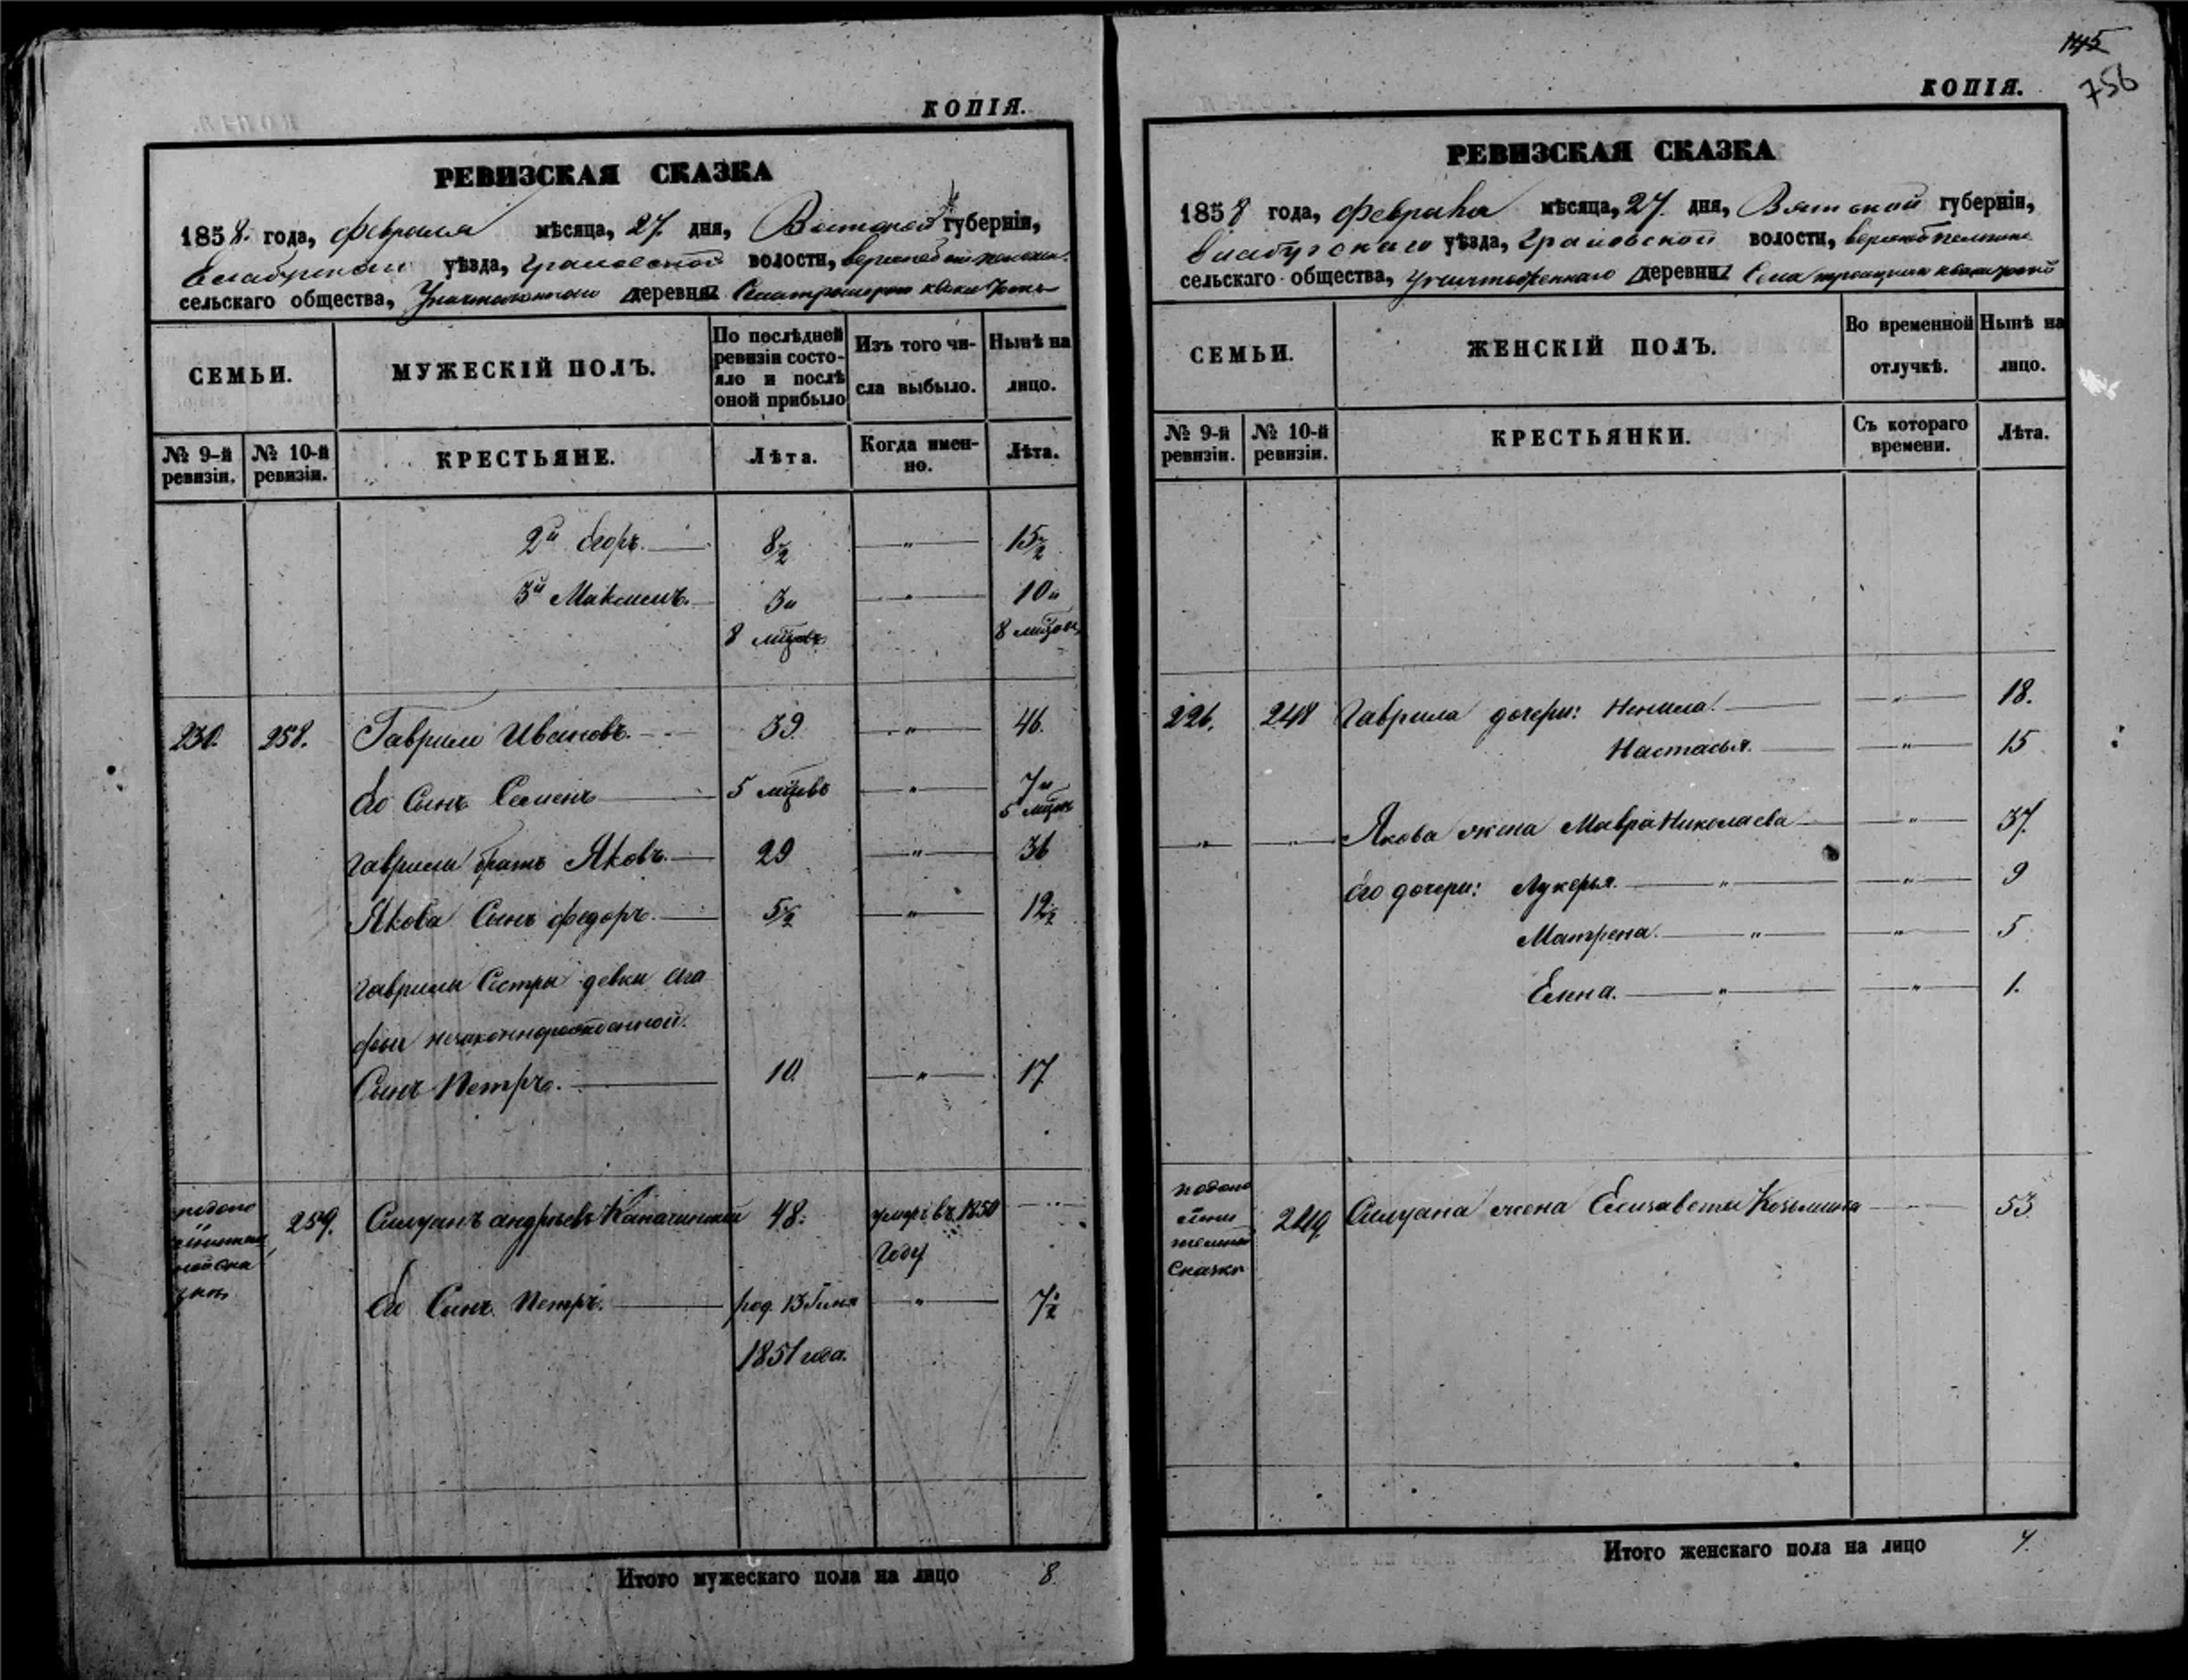 145
756
КОПІЯ.
РЕВИЗСКАЯ СКАЗКА
1858. года, февраля мѣсяца, 27. дня, Вятской губерніи,
Елабужскаго уѣзда, волости,
сельскаго общества, деревни
СЕМЬИ.
МУЖЕСКІЙ ПОЛЪ.
По послѣдней ревизіи состояло и послѣ оной прибыло
Изъ того числа выбыло.
Нынѣ на лицо.
№ 9-й ревизіи.
№ 10-й ревизіи.
КРЕСТЬЯНЕ.
Лѣта.
Когда именно.
Лѣта.
2й Егоръ. 8½ " 15½
3й Максимъ. 3 и " 10 и
8 мцовъ 8 мцовъ
230. 258. Гаврило Ивановъ. 39. " 46.
Его Сынъ Семенъ 5 мцовъ " 7 и
5 мцовъ
Гаврилы братъ Яковъ. 29 " 36
Якова Сынъ Федоръ. 5½ " 12½
Гаврилы Сестры девки Ага
фьи незаконнорожденной
Сынъ Петръ. 10. " 17
259. Силуанъ Андреевъ 48. умеръ въ 1850
году
Его Сынъ Петръ. род. 13 Іюня " 7½
1851 года.
Итого мужескаго пола на лицо 8.
КОПІЯ.
РЕВИЗСКАЯ СКАЗКА
1858 года, февраля мѣсяца, 27. дня, Вятской губерніи,
Елабужскаго уѣзда, волости,
сельскаго общества, деревни
СЕМЬИ.
ЖЕНСКІЙ ПОЛЪ.
Во временной отлучкѣ.
Нынѣ на лицо.
№ 9-й ревизіи.
№ 10-й ревизіи.
КРЕСТЬЯНКИ.
Съ котораго времени.
Лѣта.
226. 248 Гаврила дочери: Ненила. " 18.
Настасья. " 15
" " Якова жена Мавра Николаева " 37.
Его дочери: Лукерья. " " 9
Матрена. " " 5
Елена. " " 1.
249 Силуана жена Елизавета Козьмина 53
Итого женскаго пола на лицо 7.